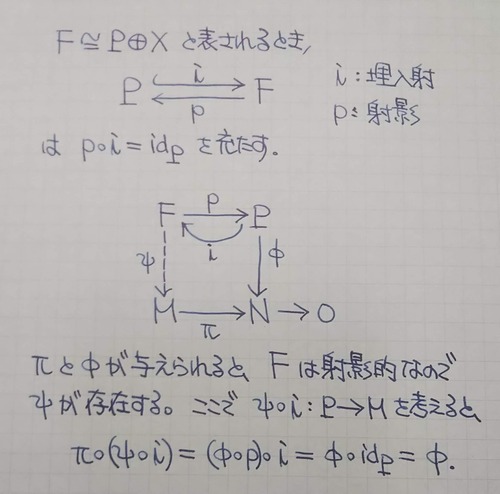 F≅P⊕X と表されるとき,
i
P ⇄ F
p
i:埋入射
p:射影
は p∘i=id_P を充たす.
F p P
i
ψ φ
M → N → 0
π
πとφが与えられると、Fは射影的なので
ψが存在する。ここで ψ∘i:P→M を考えると、
π∘(ψ∘i)=(φ∘p)∘i=φ∘id_P=φ.